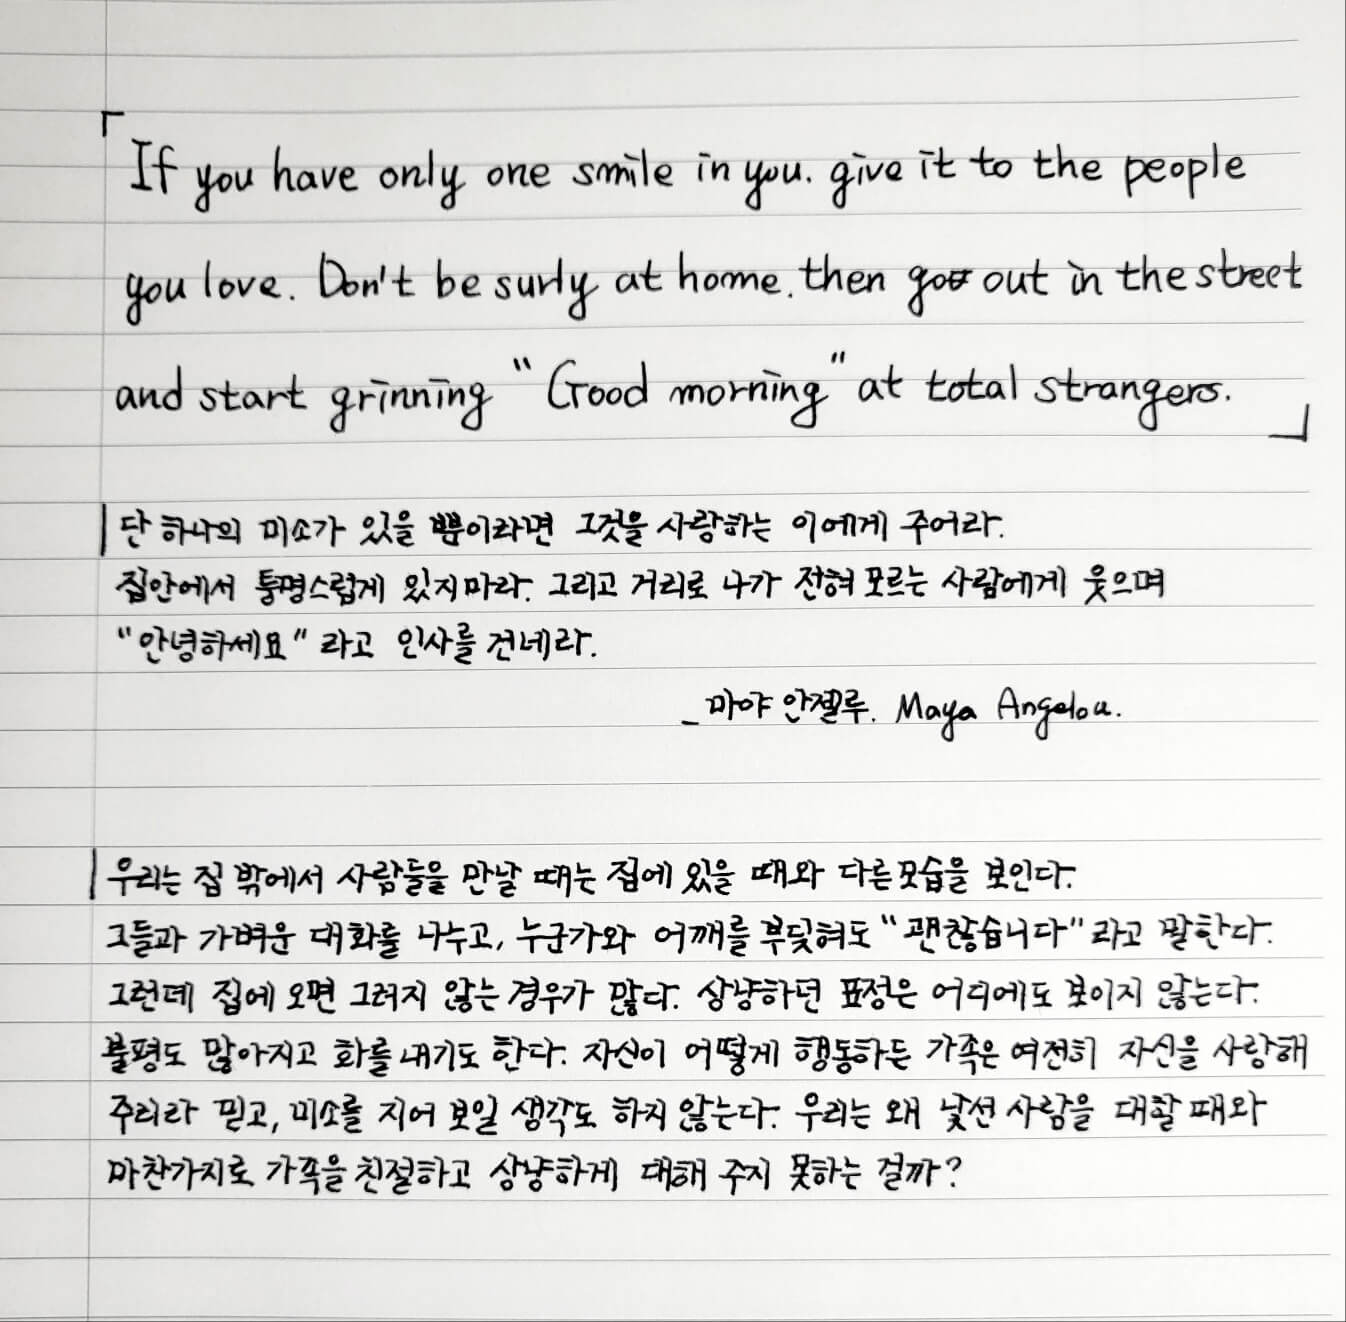 「If you have only one smile in you. give it to the people
you love. Don't be surly at home. then go out in the street
and start grinning "Good morning" at total strangers.」
단 하나의 미소가 있을 뿐이라면 그것을 사랑하는 이에게 주어라.
집안에서 퉁명스럽게 있지마라. 그리고 거리로 나가 전혀 모르는 사람에게 웃으며
"안녕하세요" 라고 인사를 건네라.
_마야 안젤루. Maya Angelou.
우리는 집 밖에서 사람들을 만날 때는 집에 있을 때와 다른 모습을 보인다.
그들과 가벼운 대화를 나누고, 누군가와 어깨를 부딪혀도 "괜찮습니다" 라고 말한다.
그런데 집에 오면 그러지 않는 경우가 많다. 상냥하던 표정은 어디에도 보이지 않는다.
불평도 많아지고 화를 내기도 한다. 자신이 어떻게 행동하든 가족은 여전히 자신을 사랑해
주리라 믿고, 미소를 지어 보일 생각도 하지 않는다. 우리는 왜 낯선 사람을 대할 때와
마찬가지로 가족을 친절하고 상냥하게 대해 주지 못하는 걸까?